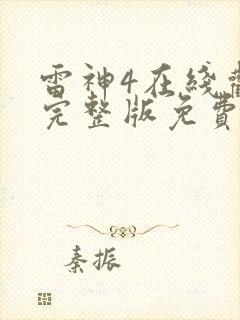 雷神4在线
完整版免費
秦振